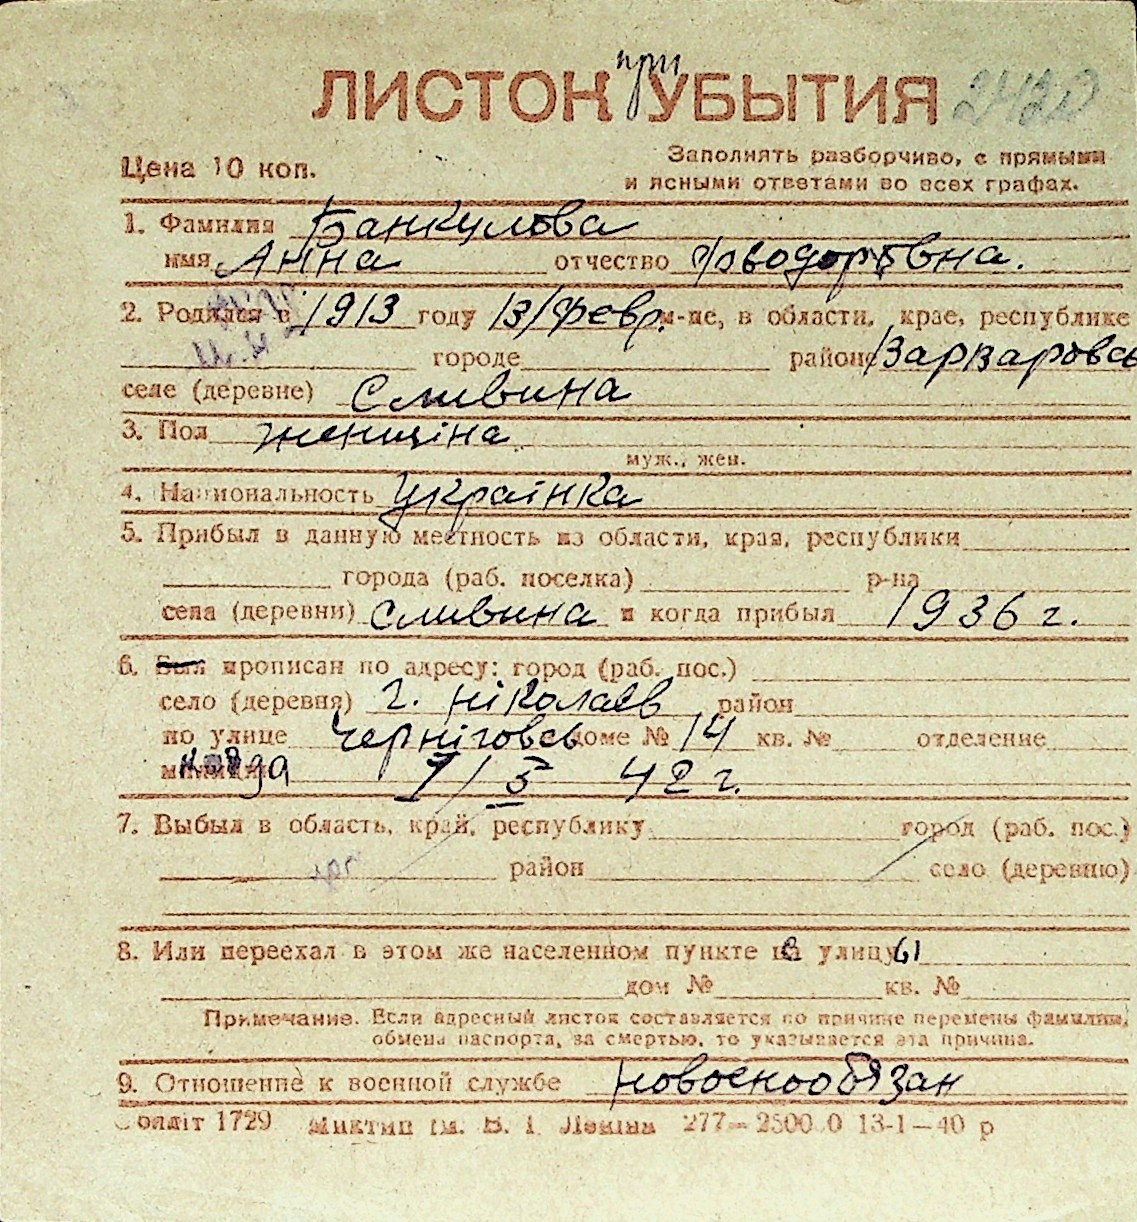 при
ЛИСТОК УБЫТИЯ 2420
Цена 10 коп. Заполнять разборчиво, с прямыми
и ясными ответами во всех графах.
1. Фамилия Банкулова
имя Анна отчество Фводоровна.
2. Родился в 1913 году 13/февр. м-це, в области, крае, республике
городе районе Варваровсь
селе (деревне) Сливина
3. Пол женщіна
муж., жен.
4. Национальность Українка
5. Прибыл в данную местность из области, края, республики
города (раб. поселка) р-на
села (деревни) Сливина и когда прибыл 1936 г.
6. Был прописан по адресу: город (раб. пос.)
село (деревня) г. Ніколаєв район
по улице Черніговсь доме № 14 кв. № отделение
милиции когда 1/5 42 г.
7. Выбыл в область, край, республику город (раб. пос.)
район село (деревню)
8. Или переехал в этом же населенном пункте на улицу
дом № кв. №
Примечание. Если адресный листок составляется по причине перемены фамилии,
обмена паспорта, за смертью, то указывается эта причина.
9. Отношение к военной службе
1729 Миктип ім. В. І. Леніна 277—2500.0 13-1—40 р